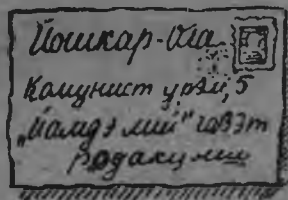 Йошкар-Ола
Комунист урем, 5
„Йамдэ лий" газэт
редакций